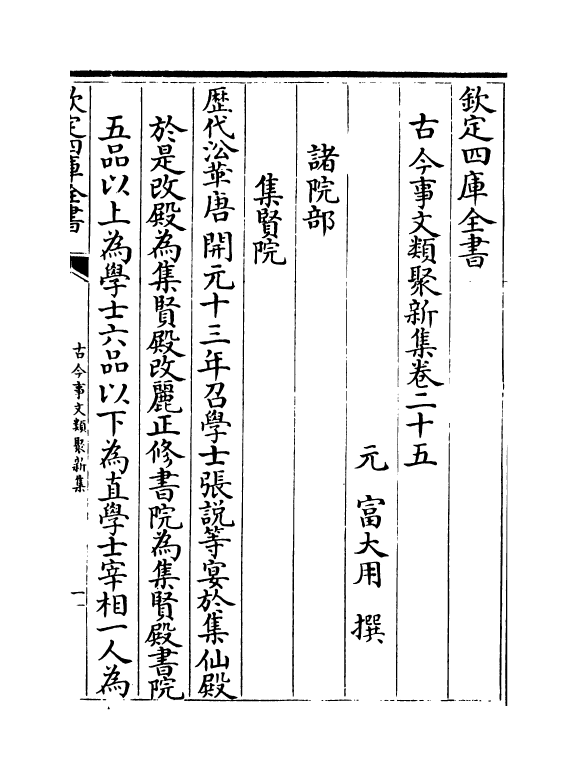 欽定四庫全書
古今事文類聚新集卷二十五
元 富大用 撰
諸院部
集賢院
歴代沿革唐開元十三年召學士張說等宴於集仙殿
於是改殿為集賢殿改麗正修書院為集賢殿書院
五品以上為學士六品以下為直學士宰相一人為
欽定四庫全書
古今事文類聚新集
一